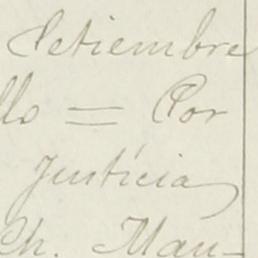 Setiembre
llo = Por
Justicia
Ch. Mau-